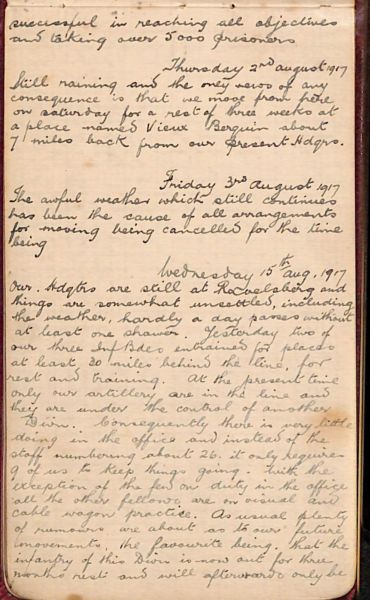 successful in reaching all objectives
and taking over 5000 prisoners
Thursday 2nd august 1917
Still raining and the only news of any
consequence is that we move from here
on saturday for a rest of three weeks at
a place named Vieux Berquin about
7 miles back from our present Hdqrs.
Friday 3rd August 1917
The awful weather which still continues
has been the cause of all arrangements
for moving being cancelled for the time
being
Wednesday 15th aug. 1917
Our. Hdqtrs are still at Ravelsberg and
things are somewhat unsettled, including
the weather, hardly a day passes without
at least one shower. Yesterday two of
our three Inf Bdes entrained for places
at least 20 miles behind the line, for
rest and training. At the present time
only our artillery are in the line and
they are under the control of another
Divn. Consequently there is very little
doing in the office and instead of the
staff numbering about 26. it only requires
9 of us to keep things going. With the
exception of the few on duty in the office
all the other fellows are on visual and
cable wagon practice. As usual plenty
of rumours are about as to our future
movements, the favourite being that the
infantry of this Divn is now out for three
months rest and will afterwards only be